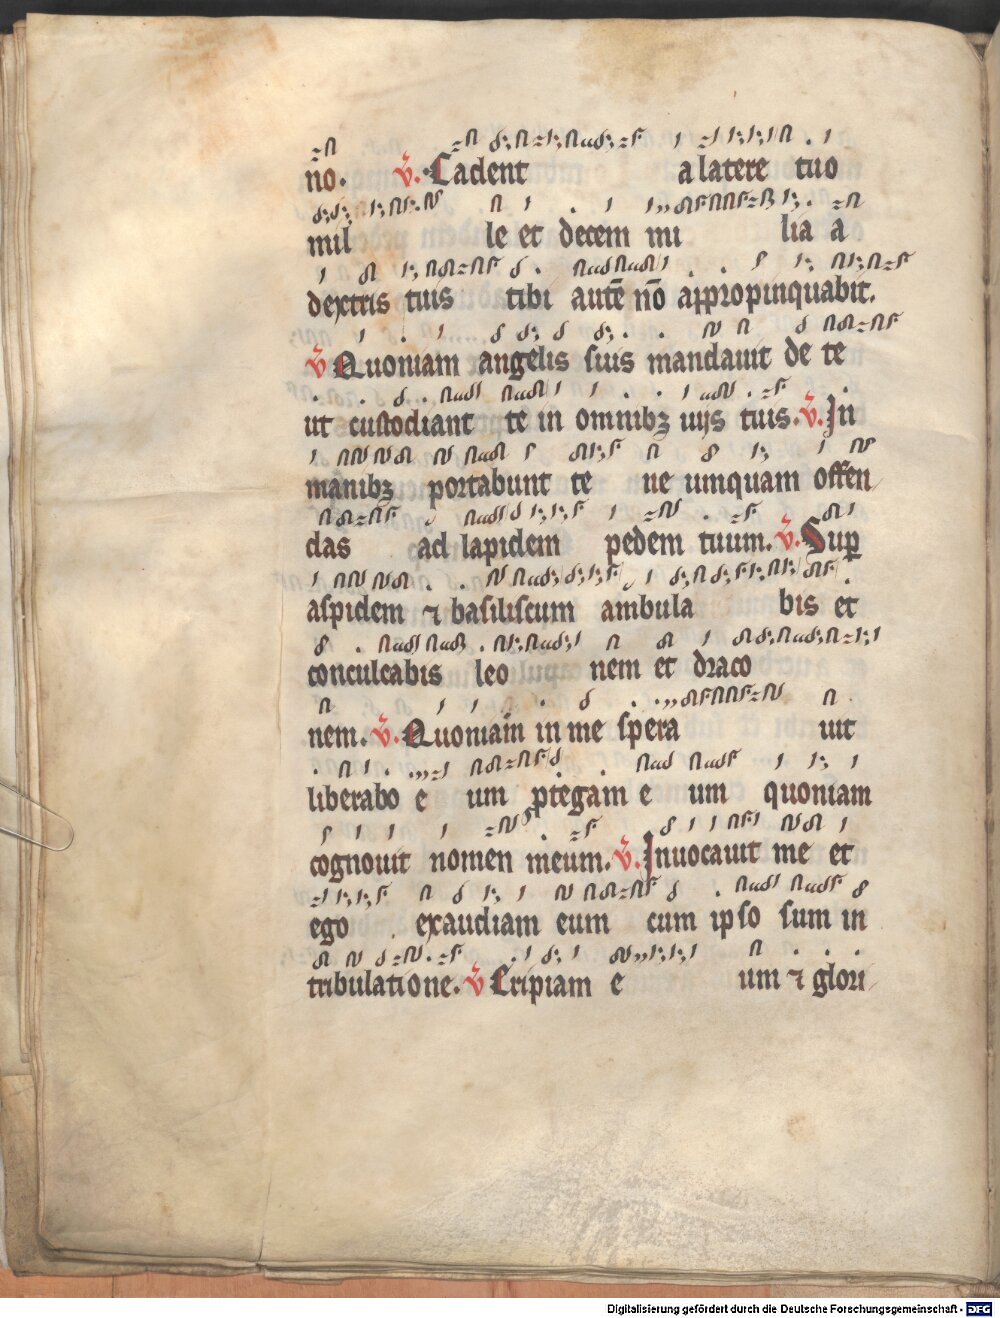 no. v̄. Cadent a latere tuo
mil le et decem mi lia a
dextris tuis tibi autē nō appropinquabit.
v̄ Quoniam angelis suis mandauit de te
ut custodiant te in omnibꝫ uijs tuis. v̄. In
manibꝫ portabunt te ne umquam offen
das ad lapidem pedem tuum. v̄. Suꝑ
aspidem ⁊ basiliscum ambula bis et
conculcabis leo nem et draco
nem. v̄. Quoniam in me spera uit
liberabo e um ꝓtegam e um quoniam
cognouit nomen meum. v̄. Inuocauit me et
ego exaudiam eum cum ipso sum in
tribulatione. v̄ Eripiam e um ⁊ glori
Digitalisierung gefördert durch die Deutsche Forschungsgemeinschaft - DFG